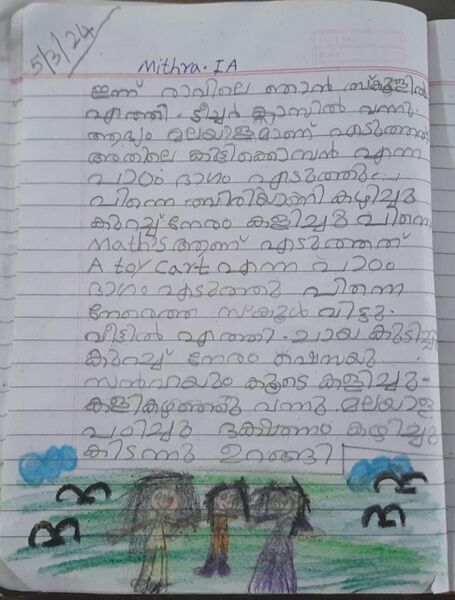 5/3/24
Mithra. I A
ഇന്ന് രാവിലെ ഞാൻ സ്കൂളിൽ
എത്തി. ടീച്ചർ ക്ലാസിൽ വന്നു.
ആദ്യം മലയാളമാണ് എടുത്തത്
അതിലെ കുട്ടിക്കൊമ്പൻ എന്ന
പാഠം ഭാഗം എടുത്തു.
പിന്നെ ബിരിയാണി കഴിച്ചു
കുറച്ച് നേരം കളിച്ചു പിന്നെ
Maths ആണ് എടുത്തത്
A toy cart എന്ന പാഠം
ഭാഗം എടുത്തു പിന്നെ
നേരത്തെ സ്കൂൾ വിട്ടു.
വീട്ടിൽ എത്തി. ചായ കുടിച്ചു
കുറച്ച് നേരം
സൻഹയും കൂടെ കളിച്ചു.
കളികഴഞ്ഞു വന്നു. മലയാള
പഠിച്ചു ഭക്ഷണം കഴിച്ചു
കിടന്നു ഉറങ്ങി